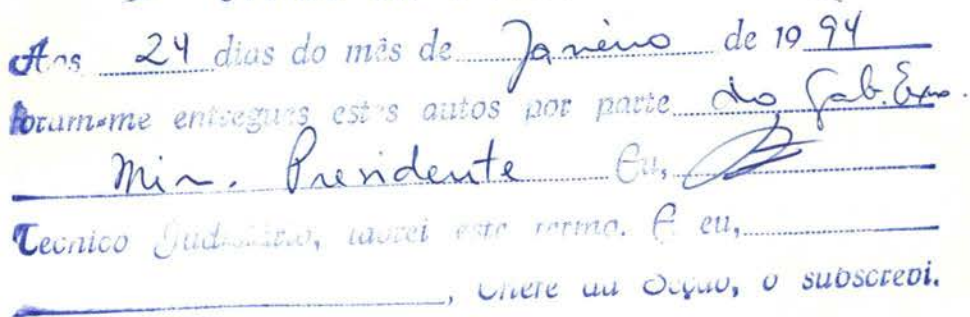 Aos 24 dias do mês de Janeiro de 19 94
foram-me entregues estes autos por parte do Gab. Exmo.
Min. Presidente Eu,
Tecnico Judiciário, lavrei este termo. E eu,
, Chefe da Seção, o subscrevi.